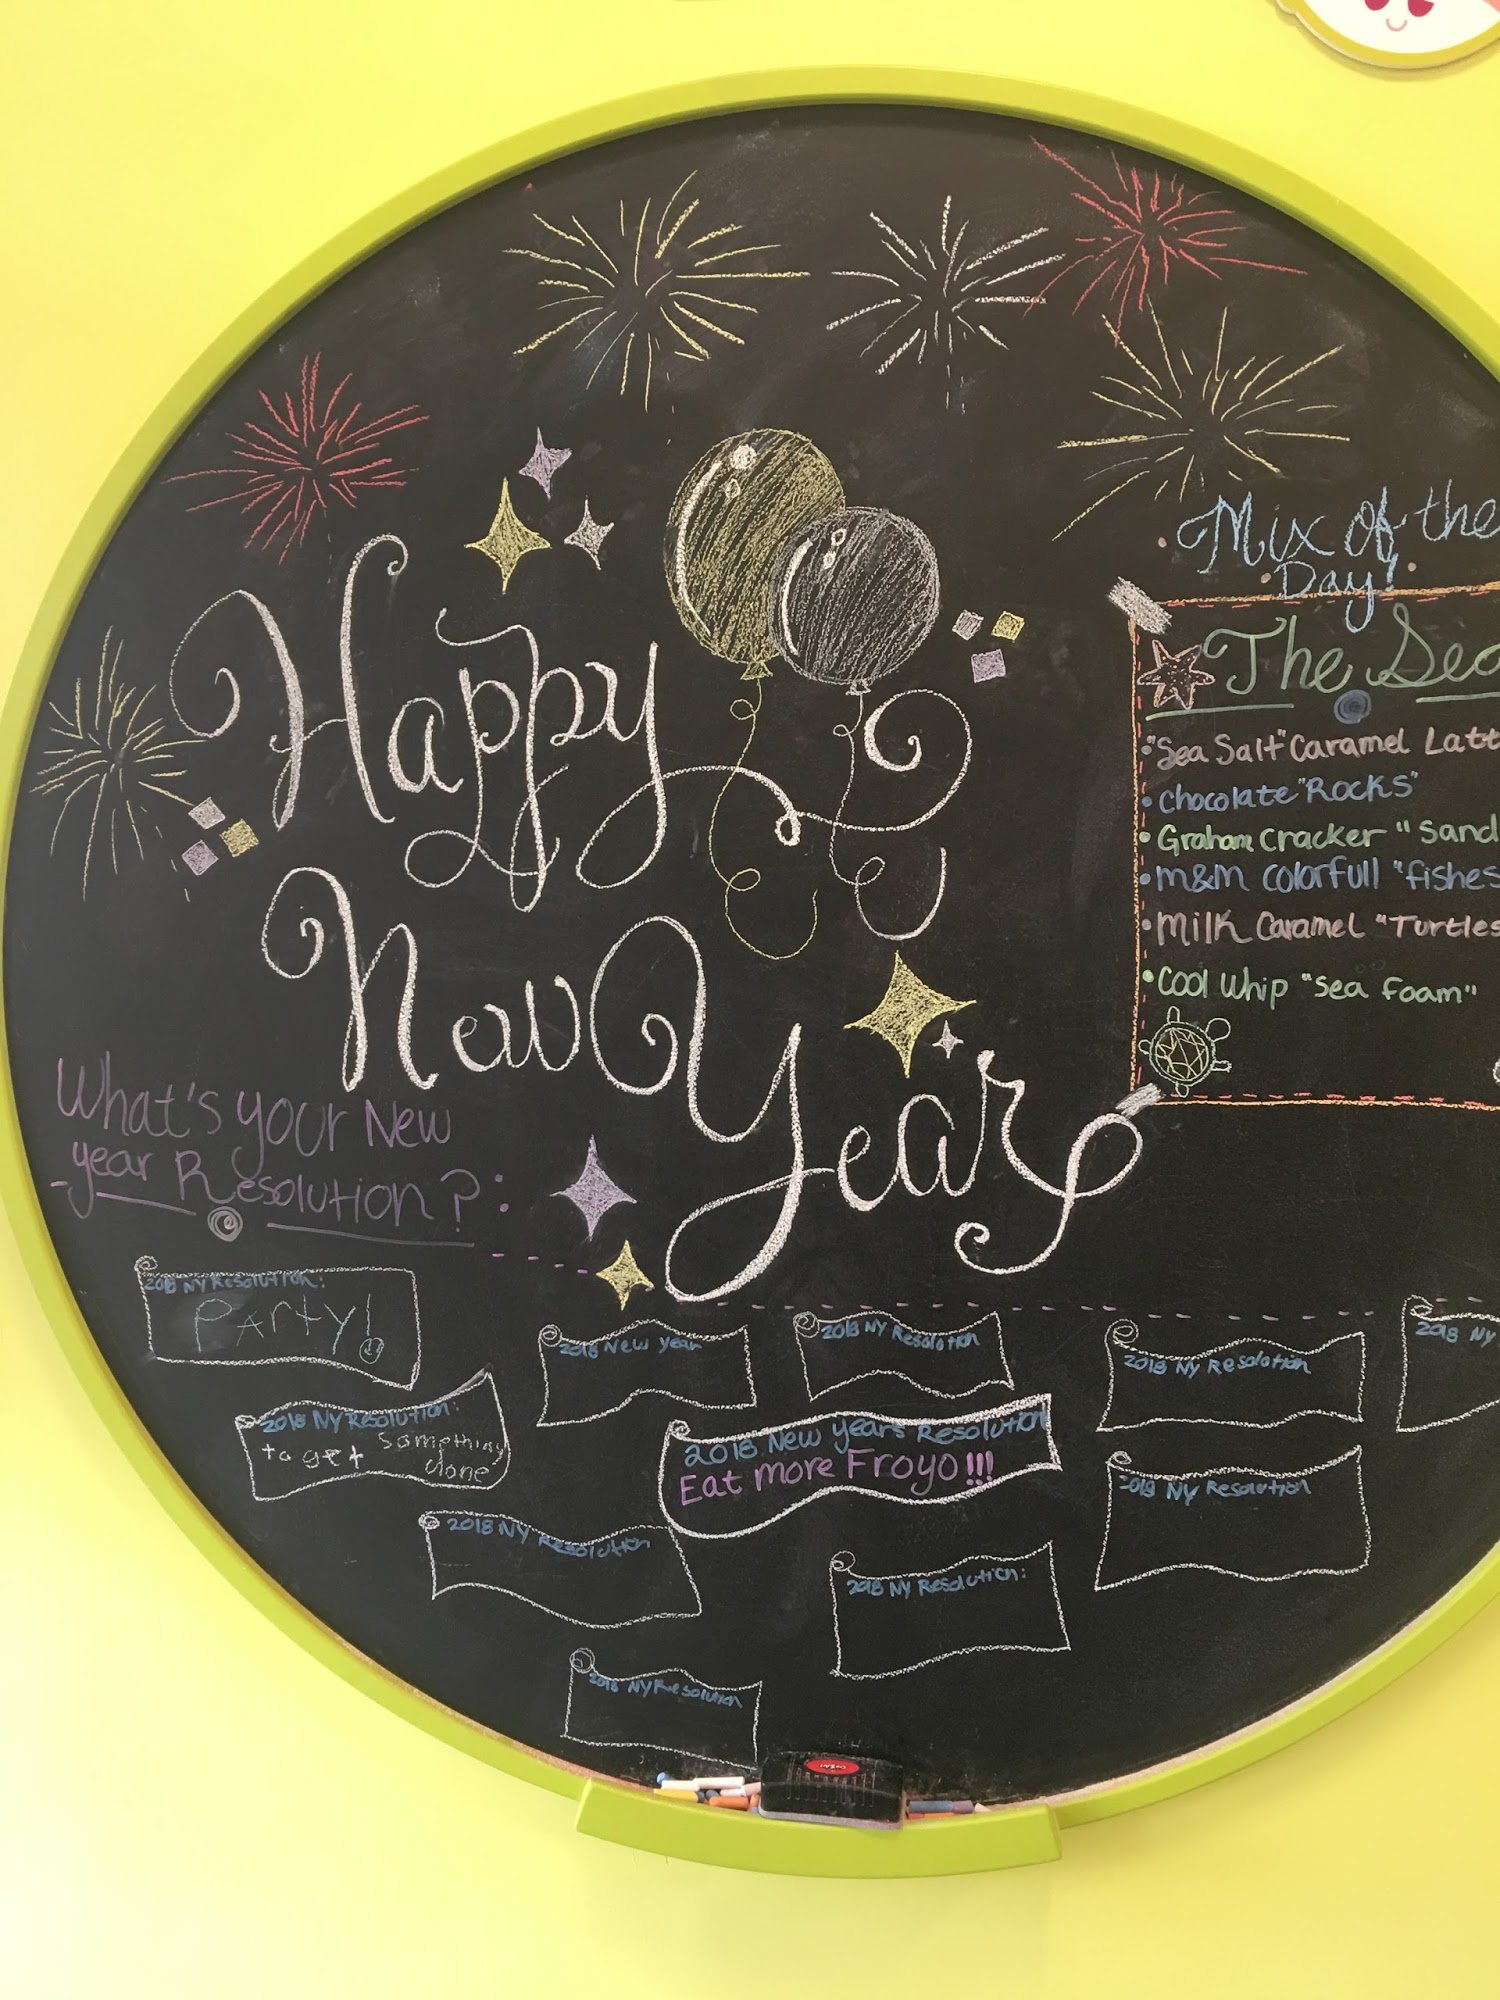 Happy
New
Year
Mix of the
Day!
The Sea
"Sea Salt" Caramel Latt
• Chocolate "Rocks"
• Graham Cracker "Sand
• M&M Colorfull "fishes
• Milk Caramel "Turtles
• Cool Whip "Sea Foam"
What's your New
year Resolution?
2018 NY Resolution:
PArty!
2018 NY Resolution:
to get something
done
2018 New year
2018 NY Resolution
2018 NY Resolution
2018 NY
2018 New years Resolution
Eat more Froyo!!!
2018 NY Resolution
2018 NY Resolution
2018 NY Resolution:
2018 NY Resolution